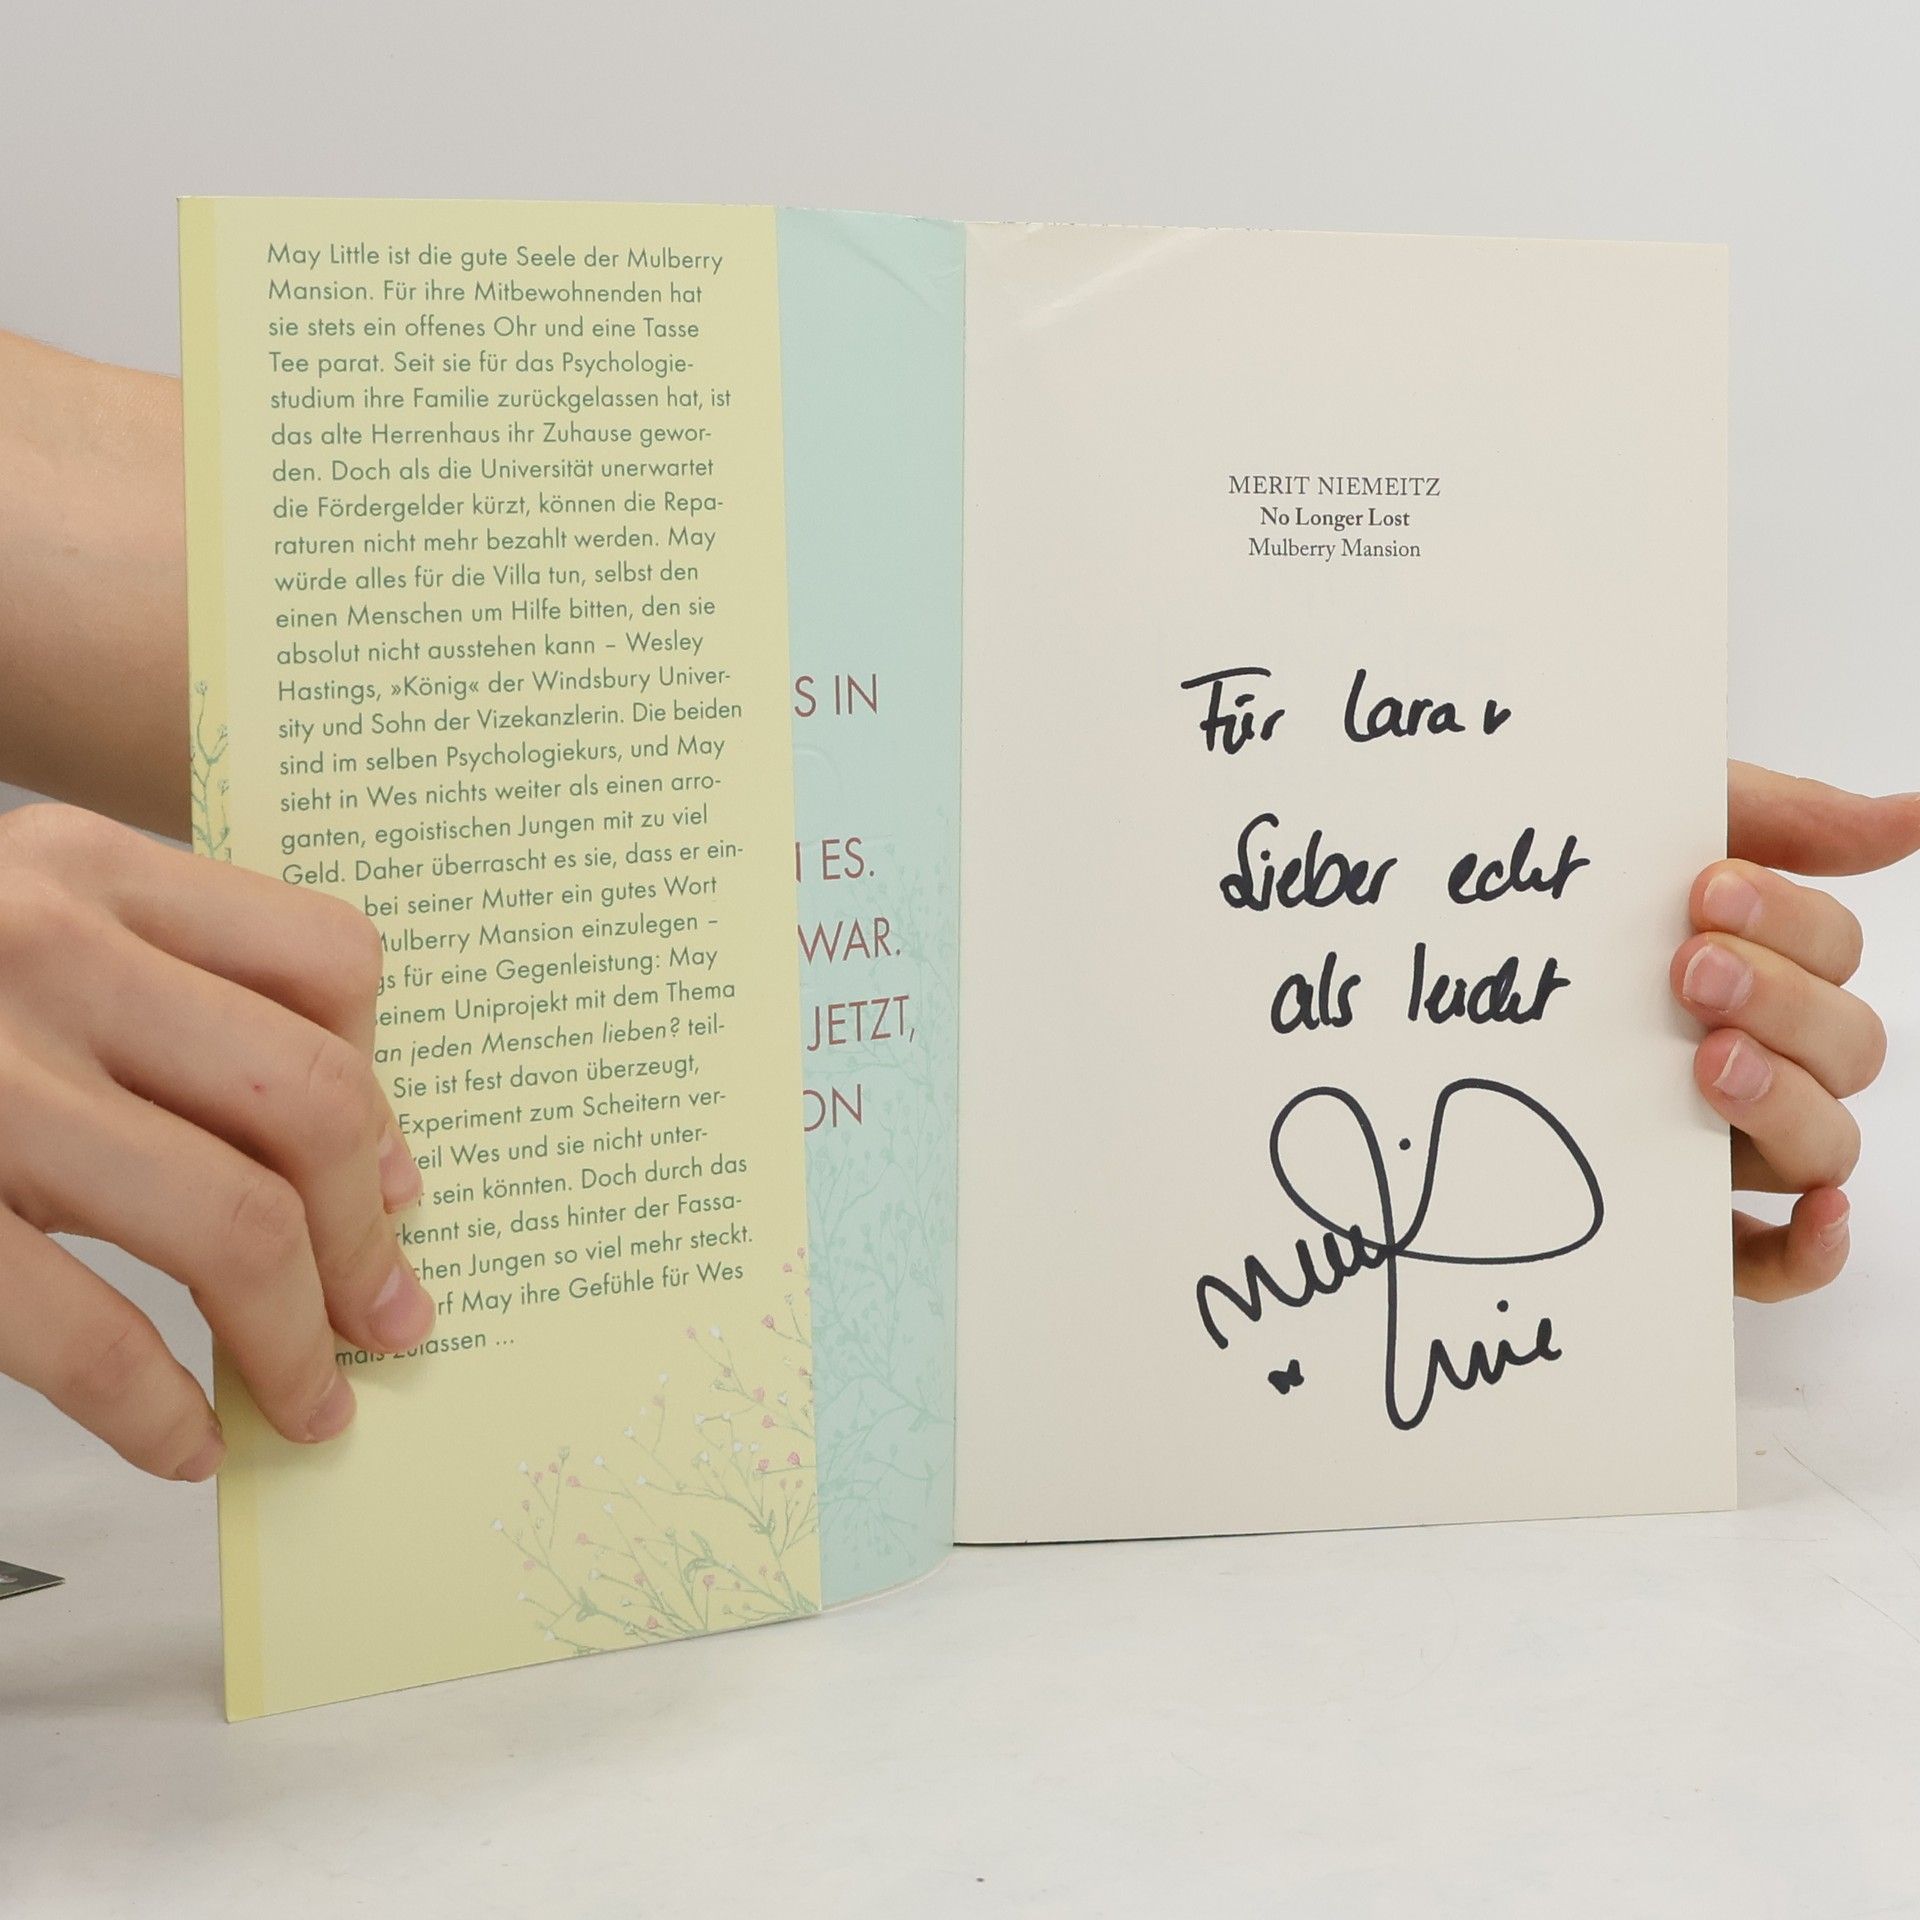 May Little ist die gute Seele der Mulberry
Mansion. Für ihre Mitbewohnenden hat
sie stets ein offenes Ohr und eine Tasse
Tee parat. Seit sie für das Psychologie-
studium ihre Familie zurückgelassen hat, ist
das alte Herrenhaus ihr Zuhause gewor-
den. Doch als die Universität unerwartet
die Fördergelder kürzt, können die Repa-
raturen nicht mehr bezahlt werden. May
würde alles für die Villa tun, selbst den
einen Menschen um Hilfe bitten, den sie
absolut nicht ausstehen kann – Wesley
Hastings, »König« der Windsbury Univer-
sity und Sohn der Vizekanzlerin. Die beiden
sind im selben Psychologiekurs, und May
sieht in Wes nichts weiter als einen arro-
ganten, egoistischen Jungen mit zu viel
Geld. Daher überrascht es sie, dass er ein-
bei seiner Mutter ein gutes Wort
Mulberry Mansion einzulegen –
gs für eine Gegenleistung: May
einem Uniprojekt mit dem Thema
an jeden Menschen lieben? teil-
Sie ist fest davon überzeugt,
Experiment zum Scheitern ver-
eil Wes und sie nicht unter-
r sein könnten. Doch durch das
rkennt sie, dass hinter der Fassa-
chen Jungen so viel mehr steckt.
rf May ihre Gefühle für Wes
mals zulassen ...
S IN
ES.
WAR.
JETZT,
ON
MERIT NIEMEITZ
No Longer Lost
Mulberry Mansion
Für Lara
Lieber echt
als leicht